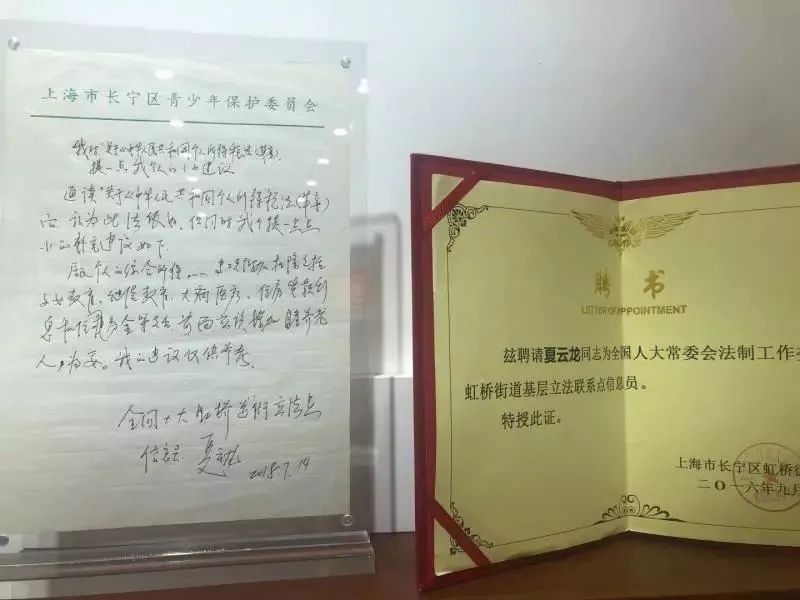 上海市长宁区青少年保护委员会
我对"关于《中华人民共和国个人所得税法(草案)
提一点我个人的小建议
通读"关于《中华人民共和国个人所得税法(草案)
认为此法很好,但同时我个提一点点
小的补充建议如下
居民个人的综合所得……专项附加扣除包括
子女教育、继续教育、大病医疗、住房贷款利
息和住房租金等支出前面应该增加赡养老
人为妥。我的建议仅供参考。
全国人大虹桥街道立法点
信息员 夏云龙 2018.7.14
聘书
LETTER OF APPOINTMENT
兹聘请夏云龙同志为全国人大常委会法制工作委
虹桥街道基层立法联系点信息员。
特授此证。
上海市长宁区虹桥街
二〇一六年九月